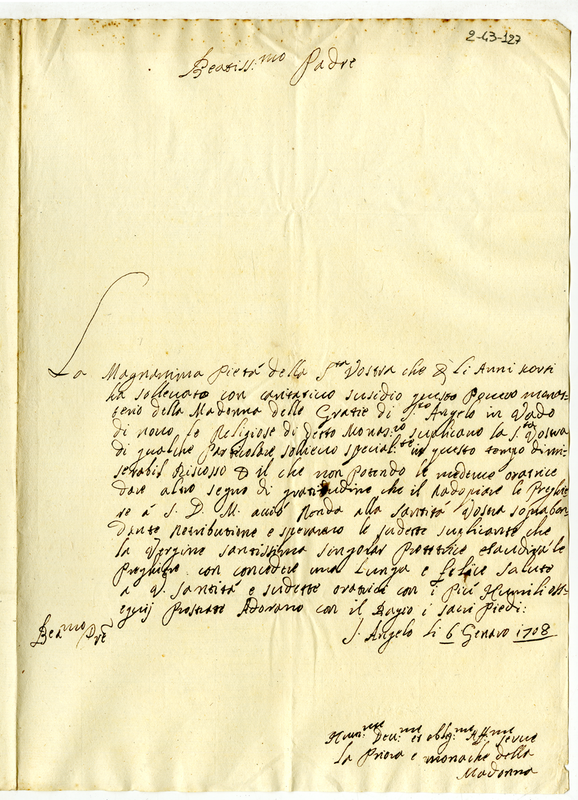 2-43-127
Beatiss:mo Padre
La Magnanima Pietà della S.tta Vostra che & li Anni scorsi
ha sollevato con caritativo susidio questo Povero monas-
terio della Madonna delle Gratie di S.to Angelo in Vado
di novo le Religiose di detto Monas:io suplicano la S.tta Vostra
di qualche Particolare solievo special:te in questo tempo di mi-
serabil Riscosso & il che non Potendo le medeme oratrice
dare altro segno di gratitudine che il radopiare le Preghie
re a S. D. M. acciò Renda alla Santità Vostra soprabon
dante Retributione e sperano le sudette suplicante che
la Vergine Santissima singolar Protetrice esaudirà le
Preghiere con concedere una Lunga e felice salute
a V. Santità e sudette oratrici con i più Humili oss-
equij Prostrate Adorano con il Bagio i sacri Piedi:
Bea:mo Pre
S. Angelo li 6 Genaro 1708
Humi:me Deu:me et oblig:me Aff:me serve
La Priora e monache della
Madonna